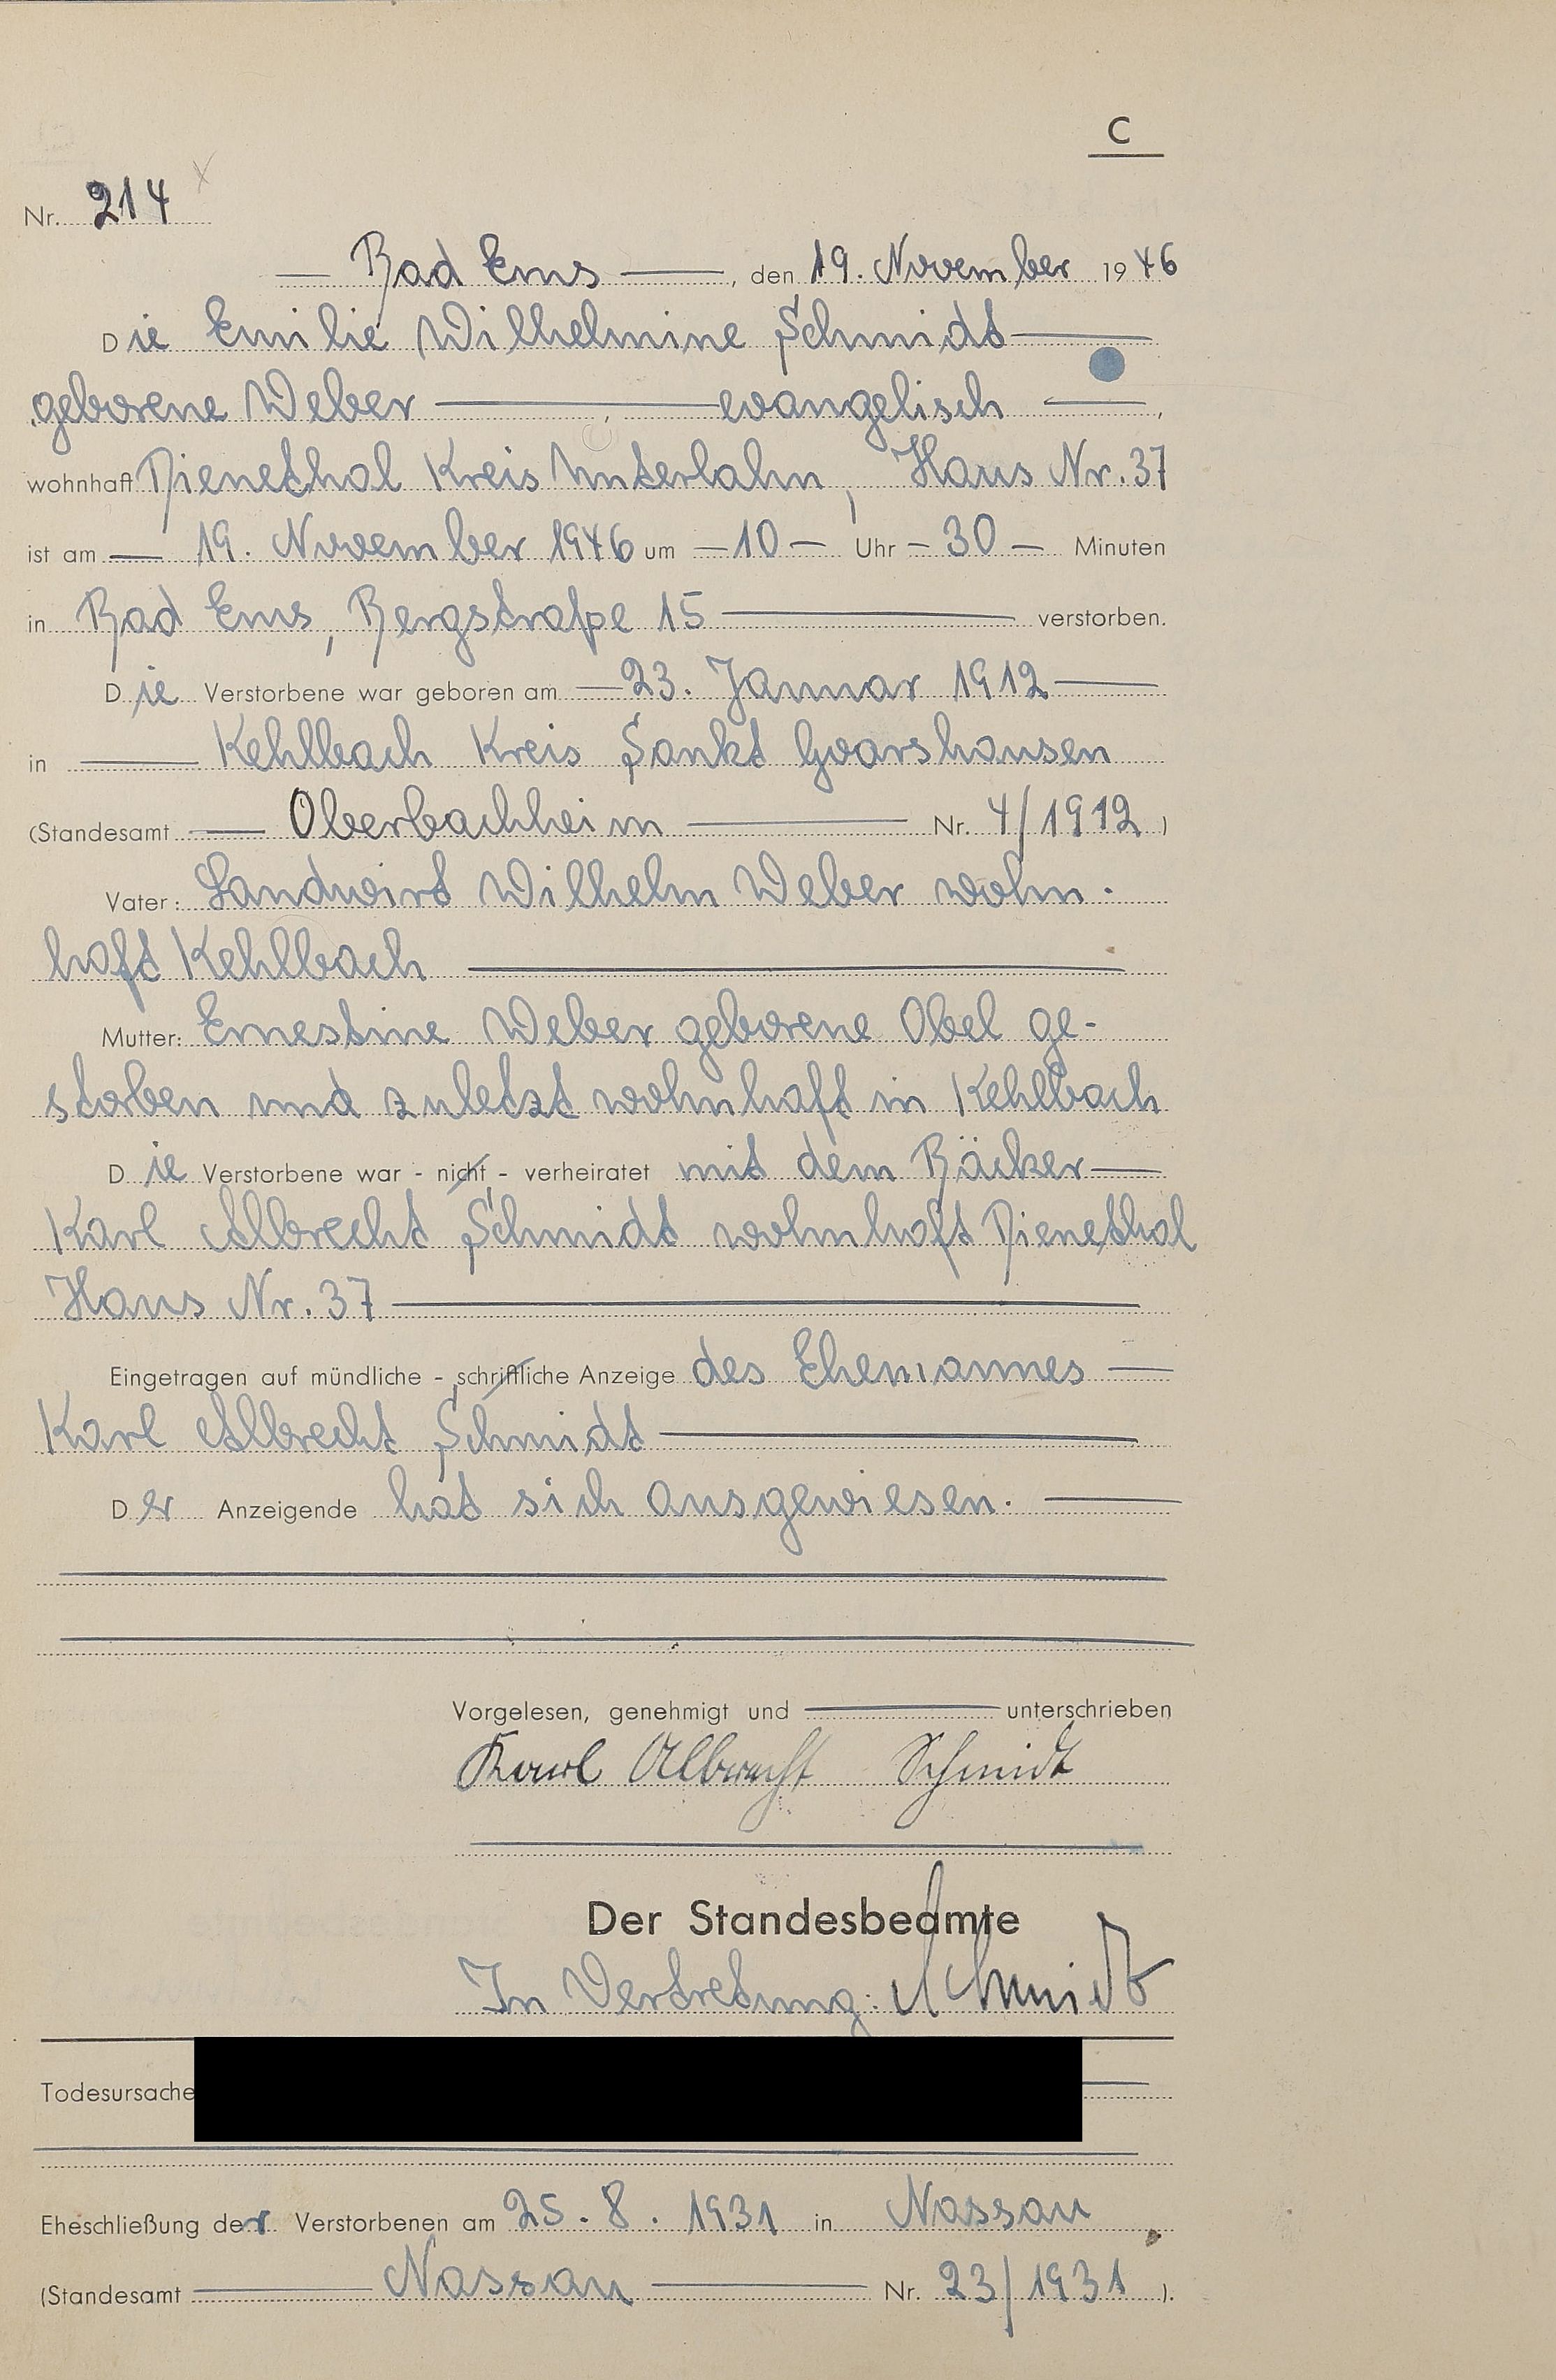 C
Nr. 214
Bad Ems, den 19. November 1946
Die Emilie Wilhelmine Schmidt
geborene Weber, evangelisch,
wohnhaft Dienethal Kreis Unterlahn, Haus Nr. 37
ist am 19. November 1946 um 10 Uhr 30 Minuten
in Bad Ems, Bergstraße 15 verstorben.
Die Verstorbene war geboren am 23. Januar 1912
in Kehlbach Kreis Sankt Goarshausen
(Standesamt Oberbachheim Nr. 4/1912)
Vater: Landwirt Wilhelm Weber wohn-
haft Kehlbach
Mutter: Ernestine Weber geborene Obel ge-
storben und zuletzt wohnhaft in Kehlbach
Die Verstorbene war - nicht - verheiratet mit dem Bäcker
Karl Albrecht Schmidt wohnhaft Dienethal
Haus Nr. 37
Eingetragen auf mündliche - schriftliche Anzeige des Ehemannes
Karl Albrecht Schmidt
Der Anzeigende hat sich ausgewiesen.
Vorgelesen, genehmigt und unterschrieben
Karl Albrecht Schmidt
Der Standesbeamte
In Vertretung: Schmidt
Todesursache
Eheschließung der Verstorbenen am 25. 8. 1931 in Nassau
(Standesamt Nassau Nr. 23/1931).